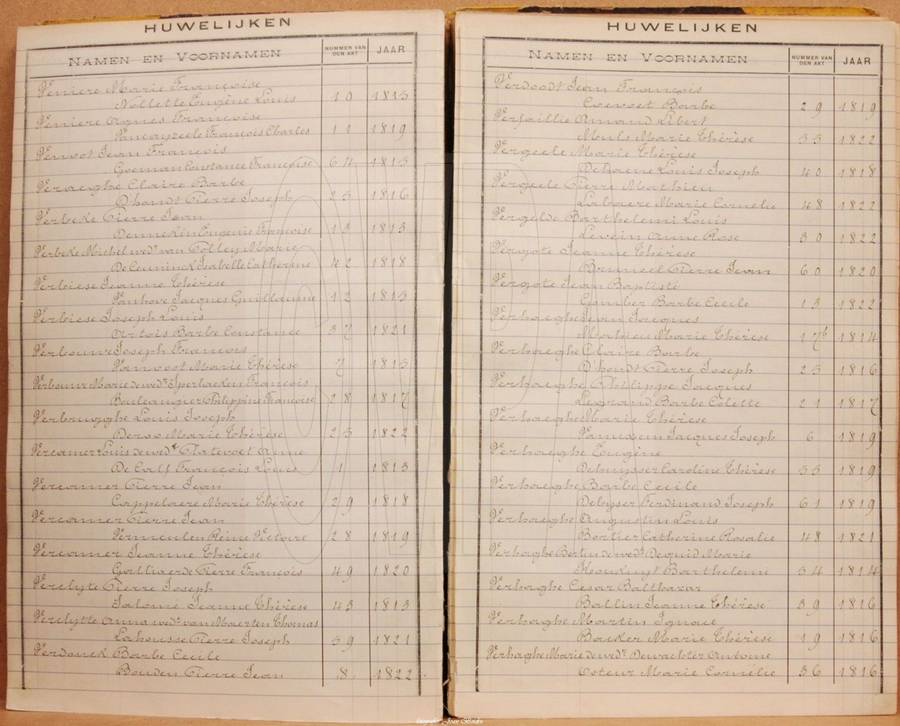 HUWELIJKEN
NAMEN EN VOORNAMEN NUMMER VAN DEN AKT JAAR
Veniere Marie Françoise
Nollet Eugène Louis 10 1815
Veniere Agnes Françoise
François Charles 11 1819
Jean François
Goeman Constance Françoise 64 1815
Veraeghe Claire Barbe
D'hondt Pierre Joseph 25 1816
Verbeke Pierre Jean
Eugenie Françoise 13 1815
Verbeke Michel wedr van Marie
De Ceuninck Isabelle Catherine 42 1818
Verbiese Jeanne Thérèse
Vanhove Jacques Guillaume 12 1815
Verbiese Joseph Louis
Artois Barbe Constance 37 1821
Joseph François
Marie Thérèse 7 1815
Marie wedr François
Boulanguier Philippine Françoise 28 1817
Verbrugghe Louis Joseph
Deroo Marie Thérèse 25 1822
Vercamer Louis
De Call François Louis 1 1813
Vercamer Pierre Jean
Cappelaere Marie Thérèse 29 1818
Vercamer Pierre Jean
Vermeulen Reine Victoire 28 1819
Vercamer Jeanne Thérèse
Pierre François 49 1820
Verclyte Pierre Joseph
Salomé Jeanne Thérèse 43 1813
Verclytte Anna Thomas
Lahousse Pierre Joseph 39 1821
Verdonck Barbe Cecile
Bouden Pierre Jean 8 1822
HUWELIJKEN
NAMEN EN VOORNAMEN NUMMER VAN DEN AKT JAAR
Verdoodt Jean François
Barbe 29 1819
Verfaillie Amand Libert
Meuls Marie Thérèse 33 1822
Vergeele Marie Thérèse
Dehaene Louis Joseph 40 1818
Vergeele Pierre Mathieu
Labaere Marie Cornelie 48 1822
Barthelemi Louis
Levein Anne Rose 30 1822
Vergote Jeanne Thérèse
Pierre Jean 60 1820
Vergote Jean Baptiste
Gomber Barbe Cecile 13 1822
Verhaeghe Jean Jacques
Marie Thérèse 1814
Verhaeghe Claire Barbe
D'hondt Pierre Joseph 25 1816
Verhaeghe Philippe Jacques
Legrand Barbe Colette 21 1817
Verhaeghe Marie Thérèse
Jacques Joseph 6 1819
Verhaeghe Eugène
Demuyser Caroline Thérèse 33 1819
Verhaeghe Barbe Cecile
Deleyser Ferdinand Joseph 61 1819
Verhaeghe Augustin Louis
Bortier Catherine Rosalie 48 1821
Verhaghe Bertin dewedr Dequid Marie
Barthelemi 54 1814
Verhaghe Cesar Balthazar
Ballin Jeanne Thérèse 39 1816
Verhaghe Martin Ignace
Backer Marie Thérèse 19 1816
Verhaghe Marie dewedr Dewachter Antoine
Osteur Marie Cornélie 36 1816